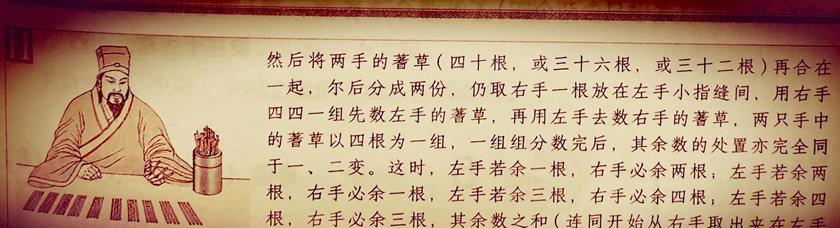 然后将两手的蓍草(四十根，或三十六根，或三十二根)再合在
一起，尔后分成两份，仍取右手一根放在左手小指缝间，用右手
四四一组先数左手的蓍草，再用左手去数右手的蓍草，两只手中
的蓍草以四根为一组，一组组分数完后，其余数的处置亦完全同
于一、二变。这时，左手若余一根，右手必余两根；左手若余两
根，右手必余一根，左手若余三根，右手必余四根；左手若余四
根，右手必余三根，其余数之和(连同开始从右手取出来在左手